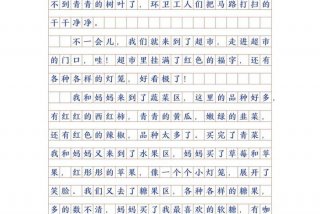 不到青青的树叶了，环卫工人们把马路打扫的
干干净净。
不一会儿，我们就来到了超市，走进超市
的门口，哇！超市里挂满了红色的福字，还有
各种各样的灯笼，好看极了！
我和妈妈来到了蔬菜区，这里的品种好多，
有红红的西红柿，青青的黄瓜，嫩绿的韭菜，
还有红色的辣椒，品种太多了。买完了青菜，
我和妈妈又来到了水果区，妈妈买了草莓和苹
果，红彤彤的苹果，像一个个小灯笼，展开了
笑脸。我们又去了糖果区，各种各样的糖果，
多的数不清，妈妈买了我最喜欢的软糖，有咖